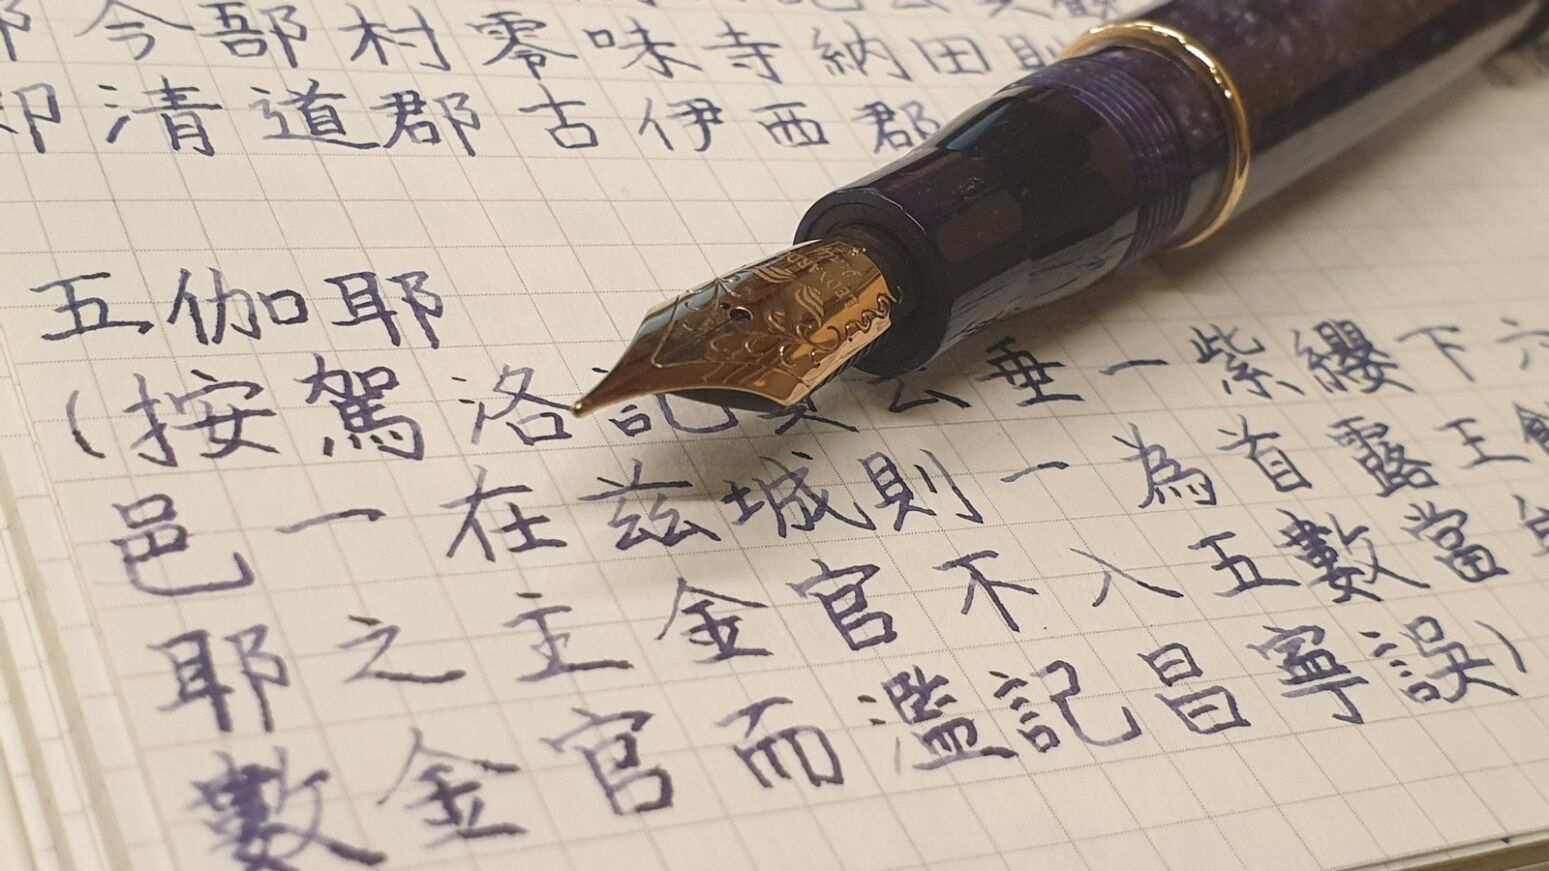 今部村零味寺納田則
清道郡古伊西郡
五伽耶
(按駕洛記贊云垂一紫纓下六
邑一在茲城則一為首露王餘
耶之主金官不入五數當
數金官而濫記昌寧誤)